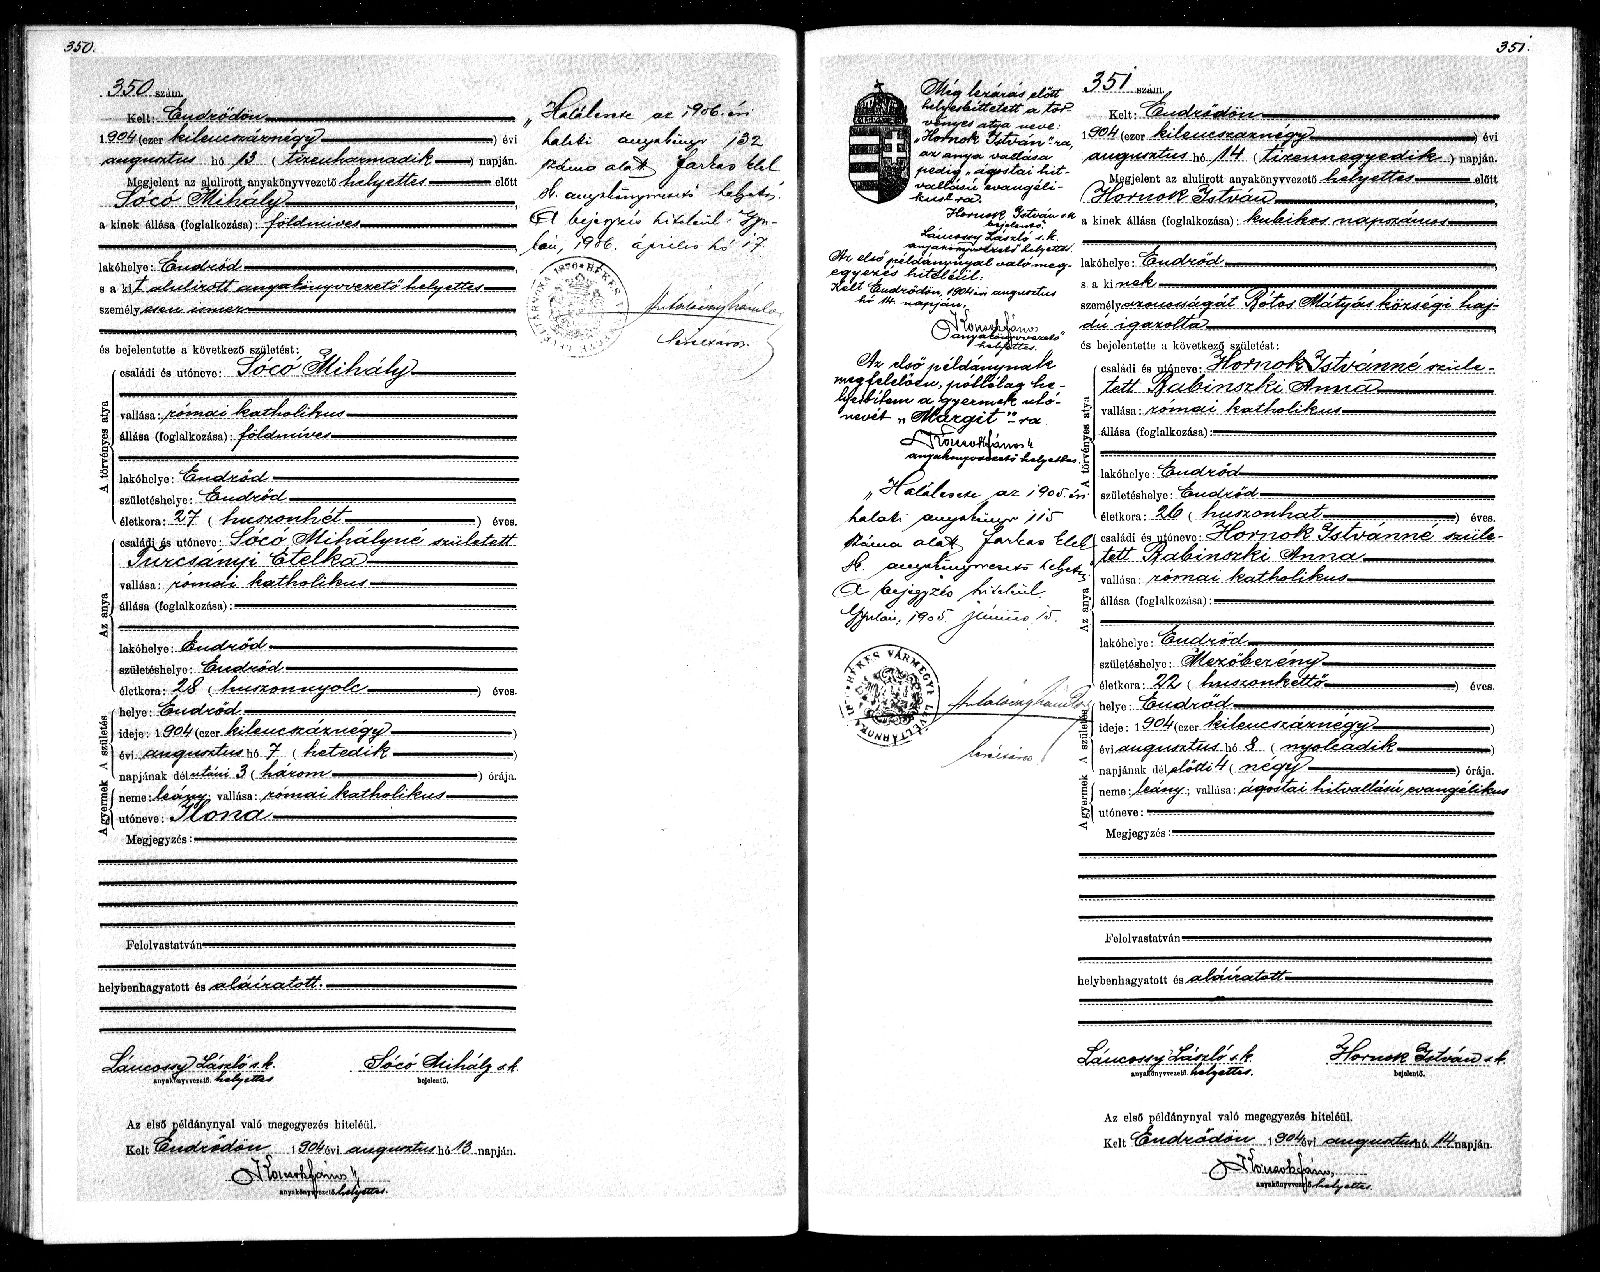 350.
350 szám.
Kelt: Endrődön
1904 (ezer kilencszáznégy) évi
augusztus hó 13 (tizenharmadik) napján.
Megjelent az alulirott anyakönyvvezető helyettes előtt
Sócó Mihály
a kinek állása (foglalkozása): földmíves
lakóhelye: Endrőd
s a kit alulirott anyakönyvvezető helyettes
személyesen ismer
és bejelentette a következő születést:
A törvényes atya
családi és utóneve: Sócó Mihály
vallása: római katholikus
állása (foglalkozása): földmíves
lakóhelye: Endrőd
születéshelye: Endrőd
életkora: 27 (huszonhét) éves.
Az anya
családi és utóneve: Sócó Mihályné született
Turcsányi Etelka
vallása: római katholikus
állása (foglalkozása):
lakóhelye: Endrőd
születéshelye: Endrőd
életkora: 28 (huszonnyolc) éves.
A gyermek A születés
helye: Endrőd
ideje: 1904 (ezer kilencszáznégy)
évi augusztus hó 7 (hetedik)
napjának dél utáni 3 (három) órája.
neme: leány; vallása: római katholikus
utóneve: Ilona
Megjegyzés:
Felolvastatván
helybenhagyatott és aláíratott.
Láncossy László s.k.
anyakönyvvezető. helyettes
Sócó Mihály s.k.
bejelentő.
Az első példánynyal való megegyezés hiteléül.
Kelt Endrődön 1904 évi augusztus hó 13 napján.
anyakönyvvezető. helyettes.
„Halálesete az 1906. évi
halotti anyakönyv 132
száma alatt Farkas Elel
s.k. anyakönyvvezető helyettes.
A bejegyzés hiteleül: Gyu-
lán, 1906. április hó 17.
351.
Még lezárás előtt
helyesbíttetett a tör-
vényes atya neve:
„Hornok István"-ra,
az anya vallása
pedig „ágostai hit-
vallású evangéli-
kus"-ra.
Hornok István s.k.
bejelentő.
Láncossy László s.k.
anyakönyvvezető helyettes.
Az első példánynyal való meg-
egyezés hiteléül.
Kelt Endrődön, 1904 évi augusztus
hó 14. napján.
anyakönyvvezető
helyettes.
Az első példánynak
megfelelően, pótlólag he-
lyesbítem a gyermek utó-
nevét „Margit"-ra
anyakönyvvezető helyettes.
„Halálesete az 1905. évi
halotti anyakönyv 115
száma alatt Farkas Elel
s.k. anyakönyvvezető helyettes"
A bejegyzés hiteleül.
Gyulán, 1905 június 15.
BÉKÉS VÁRMEGYE LEVÉLTÁRNOKA
351 szám.
Kelt: Endrődön
1904 (ezer kilencszáznégy) évi
augusztus hó 14 (tizennegyedik) napján.
Megjelent az alulirott anyakönyvvezető helyettes előtt
Hornok István
a kinek állása (foglalkozása): kubikos napszámos
lakóhelye: Endrőd
s a kinek
személyazonosságát Bótos Mátyás községi haj-
dú igazolta
és bejelentette a következő születést:
A törvényes atya
családi és utóneve: Hornok Istvánné szüle-
tett Babinszki Anna
vallása: római katholikus
állása (foglalkozása):
lakóhelye: Endrőd
születéshelye: Endrőd
életkora: 26 (huszonhat) éves.
Az anya
családi és utóneve: Hornok Istvánné szüle-
tett Babinszki Anna
vallása: római katholikus
állása (foglalkozása):
lakóhelye: Endrőd
születéshelye: Mezőberény
életkora: 22 (huszonkettő) éves.
A gyermek A születés
helye: Endrőd
ideje: 1904 (ezer kilencszáznégy)
évi augusztus hó 8. (nyolcadik)
napjának dél előtti 4 (négy) órája.
neme: leány; vallása: ágostai hitvallású evangélikus
utóneve:
Megjegyzés:
Felolvastatván
helybenhagyatott és aláíratott
Láncossy László s.k.
anyakönyvvezető. helyettes.
Hornok István s.k.
bejelentő.
Az első példánynyal való megegyezés hiteléül.
Kelt Endrődön 1904 évi augusztus hó 14 napján.
anyakönyvvezető. helyettes.